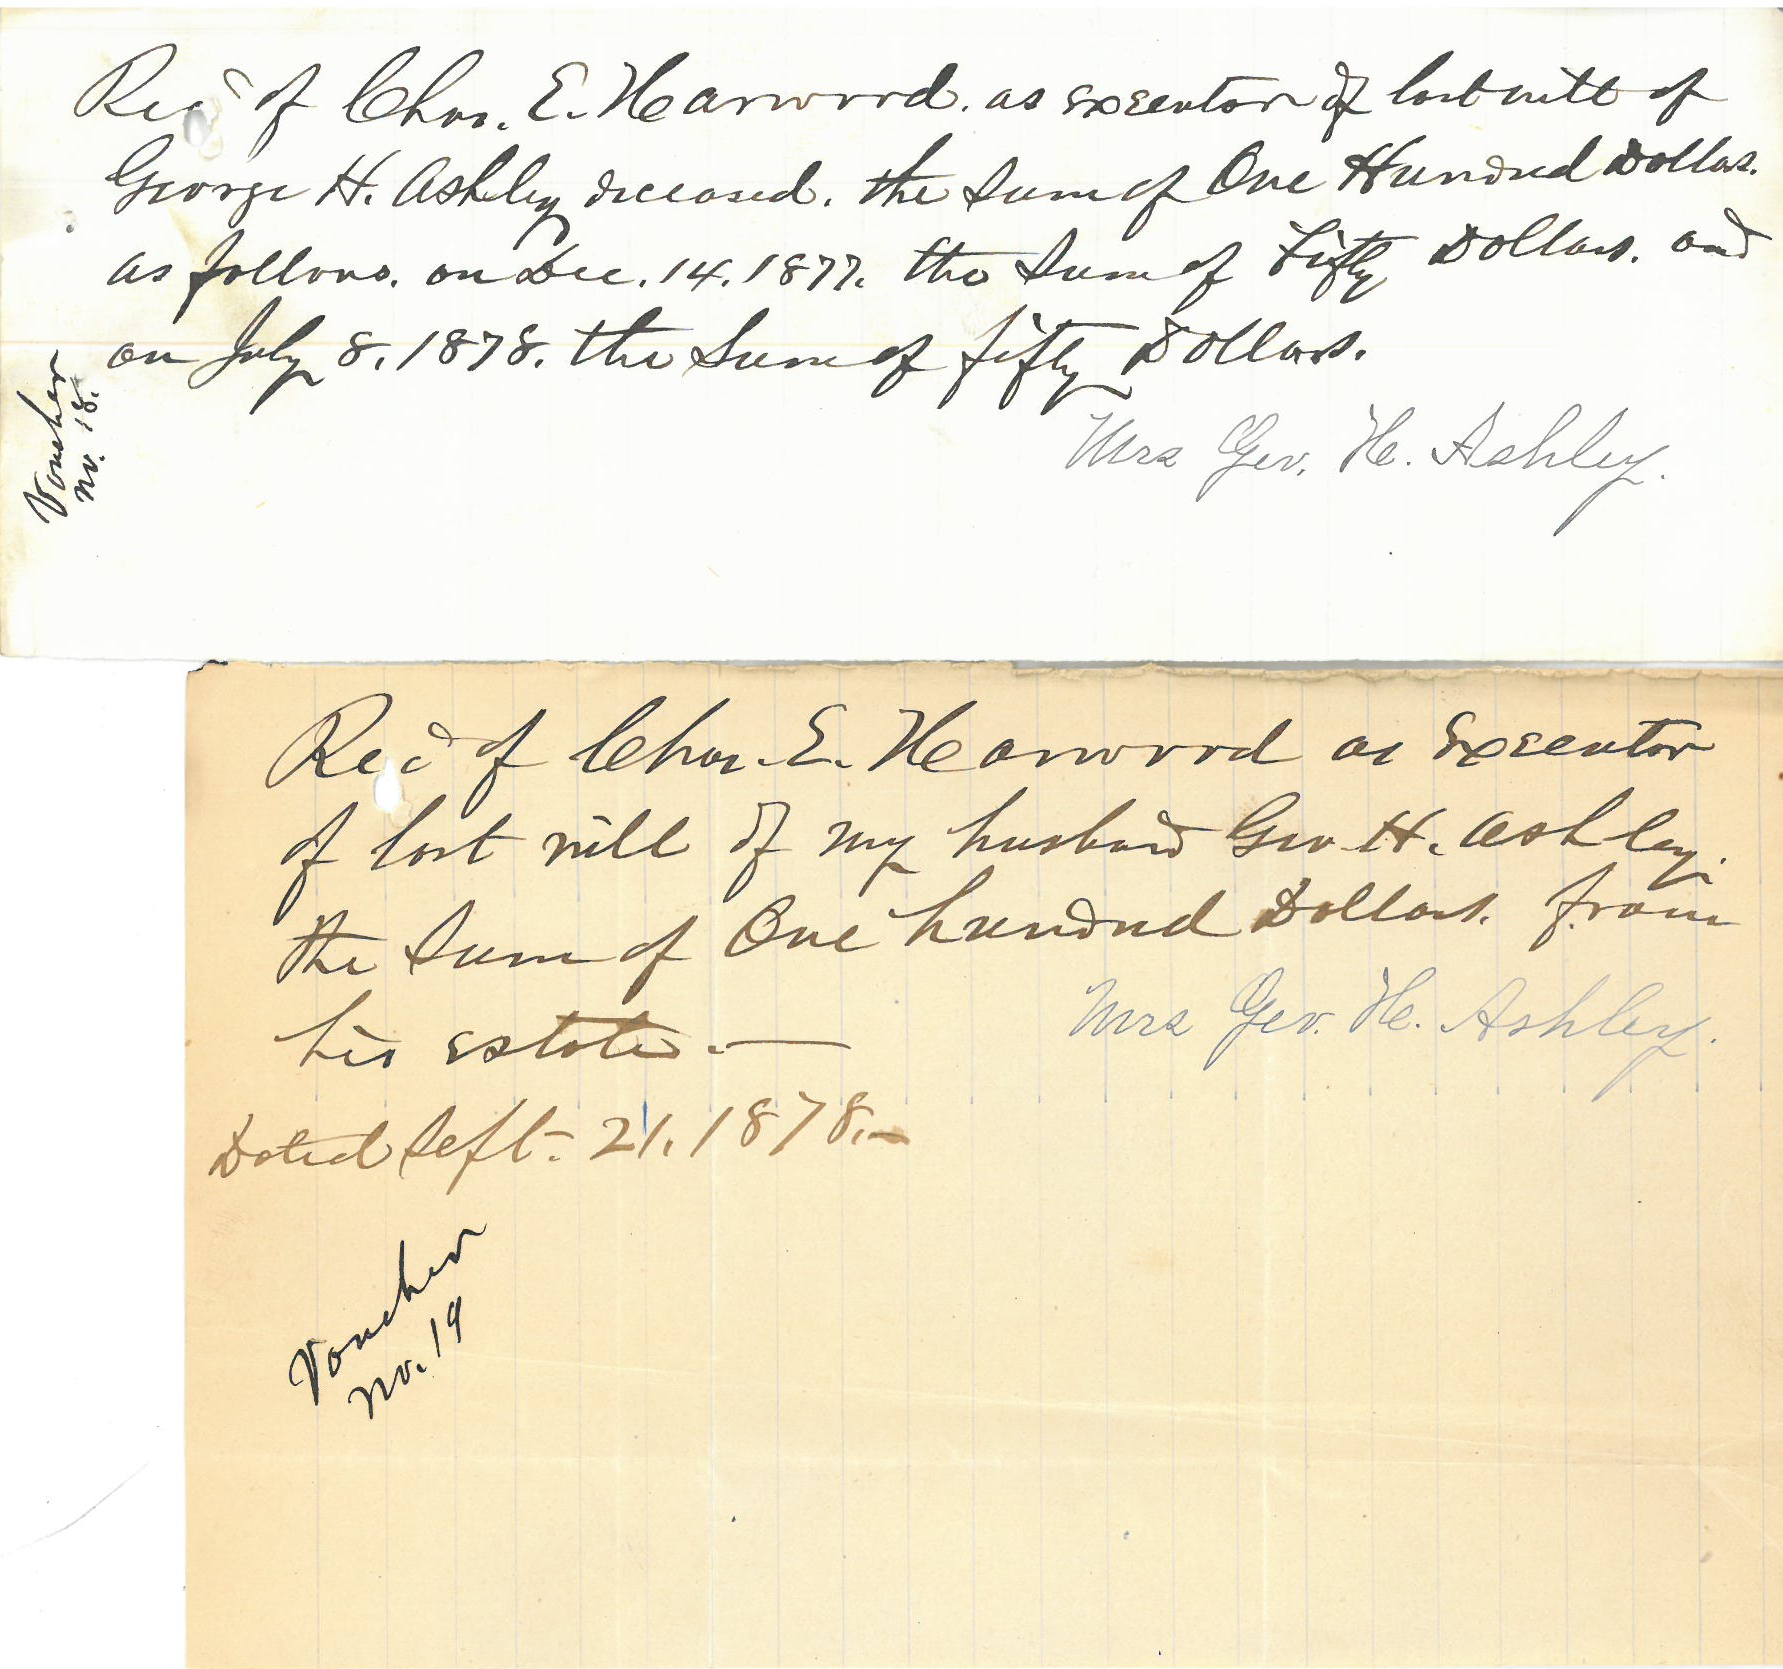 Rec'd of Chas. E. Harwood. as Executor of last will of
George H. Ashley deceased. the Sum of One Hundred Dollars.
as follows. on Dec. 14. 1877. the Sum of Fifty Dollars. and
on July 8. 1878. the Sum of fifty Dollars.
Mrs Geo. H. Ashley.
Voucher
No. 18.
Rec'd of Chas. E. Harwood as Executor
of last will of my husband Geo. H. Ashley.
the Sum of One hundred Dollars. from
his estate. —
Mrs Geo. H. Ashley.
Dated Sept. 21. 1878. –
Voucher
No. 19